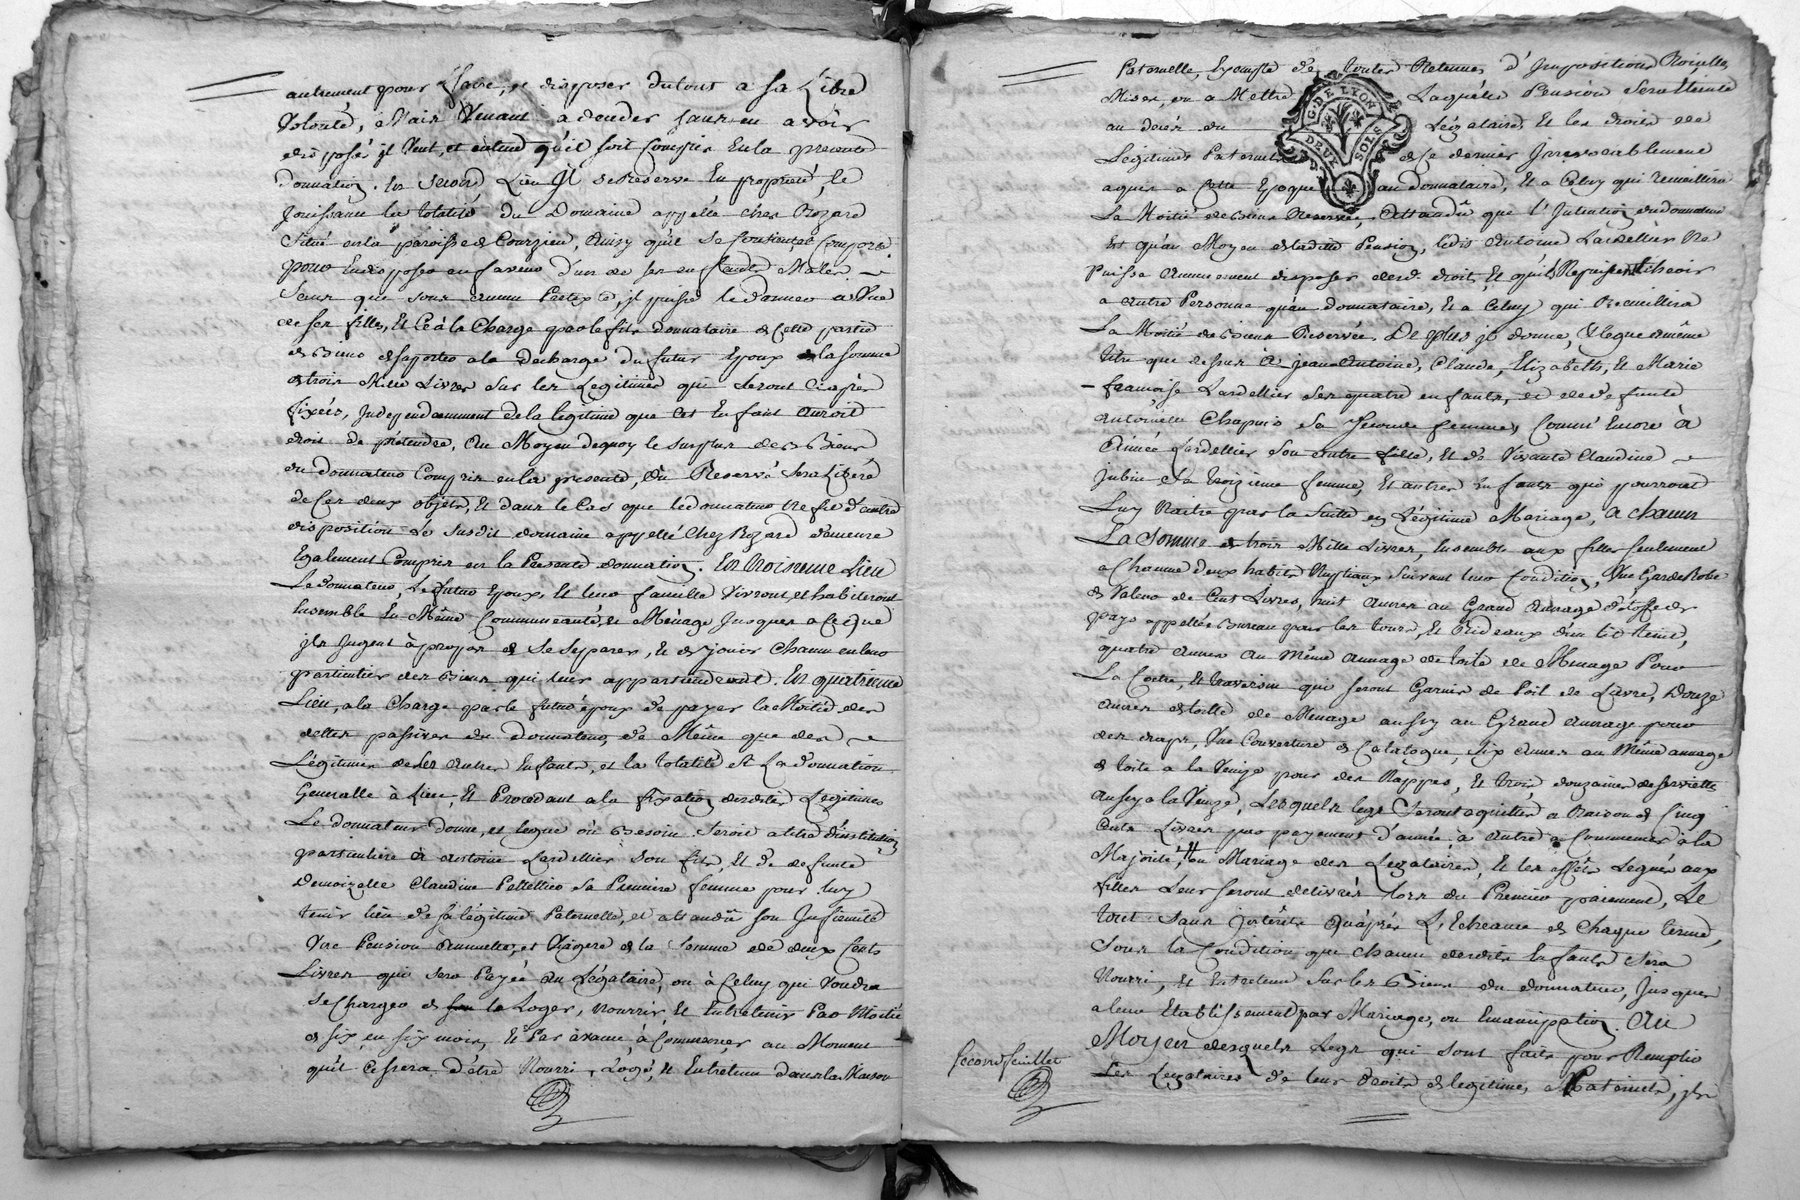 autrement pour L'avoir, et disposer du tout a sa Libre
Volonté, Mais Venant à deceder sans en avoir
disposé, il Veut, et entend qu'il soit Compris En la presente
donnation. En Second Lieu Il se Reserve En propriété, le
Jouissance la totalité du Domaine appellé chez Rozard
Situé en la paroisse de Courzieu, Ainsy qu'il se Consiste, et Comporte
pour En disposer en faveur d'un de ses enfants Males
Sans que sous aucun Pretexte, il puisse le donner à Une
de ses filles, Et Ce à la Charge par le fils donnataire de Cette partie
de Biens de faporter a la Decharge du futur Epoux de la somme
de trois Mille Livres Sur les Legitimes qui seront Ciaprès
fixées, Independamment de la legitime que Cet Enfant auroit
droit de prétendre, Au Moyen de quoy le surplus de Biens
du donnateur Compris en la presente, Du Reservé sera Libéré
de Ces deux objets, Et dans le Cas que le donnateur Ne fit d'autre
disposition Le Susdit domaine appellé Chez Rozard demeure
Egalement Compris en la Presente donnation. En Troisieme Lieu
Le donnateur, Le futur Epoux, Et leur famille Vivront, et habiteront
Ensemble En Même Communeauté, et Ménage Jusques a Ce que
ils Jugent à propos de Se Separer, Et de jouir Chacun en leur
particulier des Biens qui leur appartiendront. En quatrieme
Lieu, a la Charge par le futur époux de payer la Moitié des
dettes passives du donnateur, de Même que des
Légitimes de Ses Autres Enfants, et la totalité si La donnation
Generalle à Lieu, Et Procedant a la fixation desdites Legitimes
Le donnateur donne, et legue où Besoin seroit a titre d'institution
particuliere à Antoine Lardellier son fils, Et de defunte
Demoizelle Claudine Pelletier Sa Premiere femme pour luy
tenir lieu de sa légitime Paternelle, et attandû son Infirmité
Une Pension Annuelle, et Viagere de la Somme de deux Cents
Livres qui sera Payée au Légataire, ou à Celuy qui Voudra
se Charger de le Loger, nourrir, Et Entretenir Par Moitié
de six, en six mois, Et Par avance, à Commencer au Moment
qu'il Cessera d'être Nourri, Logé, Et Entretenu dans la Maison
Paternelle, Exempte de toutes Retenues d'Impositions Roialles
Mises, ou a Mettre Laquelle Pension Sera Eteinte
au decès du Légataire, Et les droits de
Légitimes Paternels de Ce dernier Irrevocablement
aquis a Cette Epoque au donnataire, Et a Celuy qui Recueillira
La Moitié de Biens Reservée, Attandû que l'Intention du donnateur
Est qu'au Moyen de ladite Pension, ledit Antoine Lardellier Ne
Puisse Aucunement disposer de ses droits, Et qu'ils Ne puissent Echeoir
a Autre Personne qu'au donnataire, Et a Celuy qui Recueillira
La Moitié de Biens Reservée. De plus il donne, Et legue a même
titre que dessus A jean Antoine, Claude, Elizabeth, Et Marie
françoise Lardellier ses quatre enfants, et de defunte
Antoinette Chapuis Sa seconde femme, Comm' Encore à
Aimée Lardellier Son autre fille, Et de Vivante Claudine
Jubin Sa troizieme femme, Et autres Enfants qui pourront
Luy Naitre par la Suitte en Légitime Mariage, A Chacun
La Somme de trois Mille Livres, Ensemble aux filles seulement
a Chacune deux habits Nuptiaux Suivant leur Condition, Une Garderobe
de Valeur de Cent Livres, huit Aunes au Grand Aunage d'étoffe du
pays appellée Bureau pour les tours, Et Rideaux d'un lit teint,
quatre Aunes Au Même Aunage de toile de Ménage Pour
La Coetre, Et traversin qui seront Garnis de Poil de Lievre, Douze
Aunes de toille de Menage aussy au Grand Aunage pour
des draps, Une Couverture de Catalogne, Six Aunes au Même aunage
de toile a la Venize pour des Nappes, Et trois douzaines de serviettes
Aussy a la Venize, Lesquels legs Seront aquittés a Raison de Cinq
Cents Livres par payement d'année, à Autre a Commencer à la
Majorité, ou Mariage des Legataires, Et les effets Legués aux
filles Leur seront delivrés lors du Premier paiement, Le
tout sans Intérêts qu'après L'Echeance de Chaque terme,
Sous la Condition que Chacun desdits Enfants Sera
Nourri, Et Entretenu Sur les Biens du donnateur, Jusques
a leur Etablissement par Mariage, ou Emancipation. Au
Moyen desquels Legs qui sont faits pour Remplir
Les Legataires de leurs droits de legitimes Paternels, ils
Second feuillet
G. DE LYON
DEUX SOLS